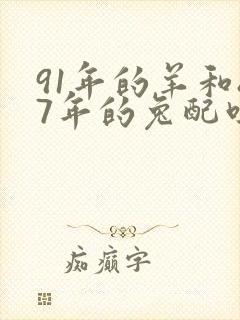 91年的羊和
7年的兔配
痴癫字